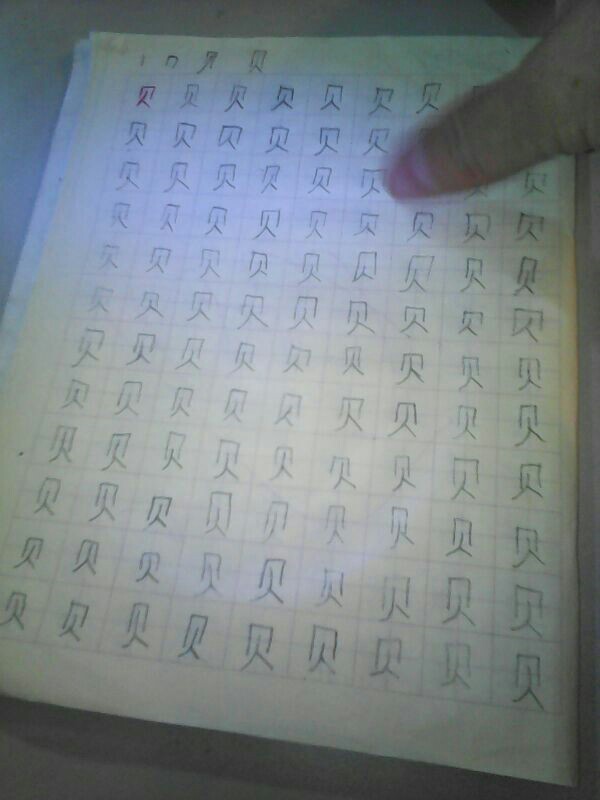 丨 冂 贝 贝
贝 贝 贝 贝 贝 贝 贝
贝 贝 贝 贝 贝 贝
贝 贝 贝 贝 贝 贝 贝 贝
贝 贝 贝 贝 贝 贝 贝 贝 贝
贝 贝 贝 贝 贝 贝 贝 贝 贝
贝 贝 贝 贝 贝 贝 贝 贝 贝
贝 贝 贝 贝 贝 贝 贝 贝 贝
贝 贝 贝 贝 贝 贝 贝 贝 贝
贝 贝 贝 贝 贝 贝 贝 贝 贝
贝 贝 贝 贝 贝 贝 贝 贝 贝
贝 贝 贝 贝 贝 贝 贝 贝 贝
贝 贝 贝 贝 贝 贝 贝 贝 贝